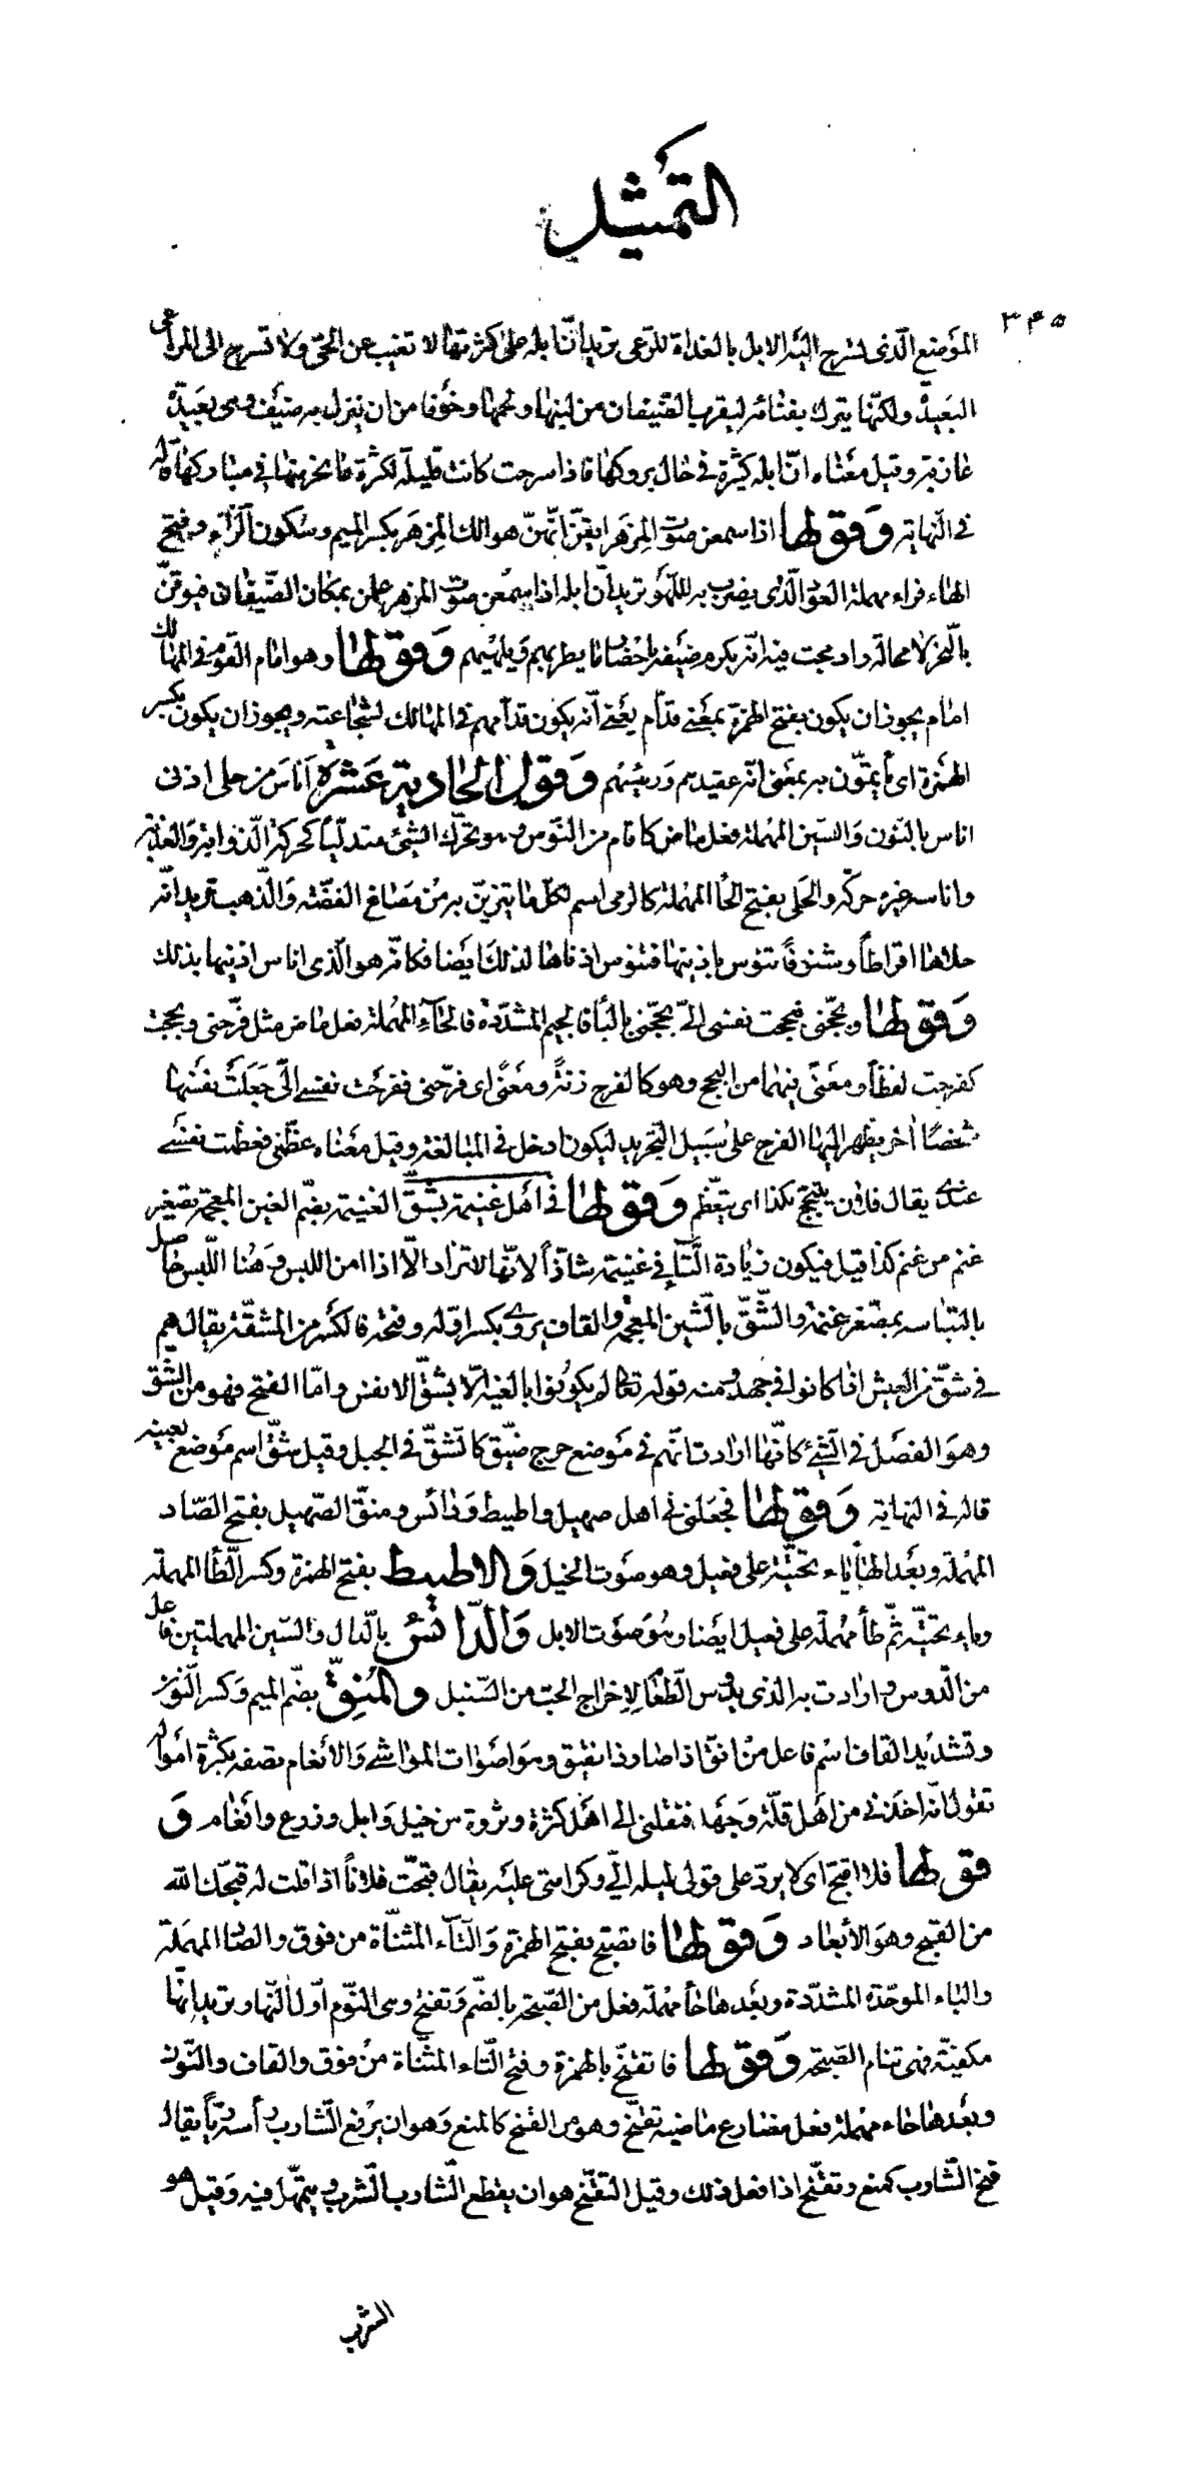 التمثيل
٣٤٥
الموضع الّذى تسرح اليه الابل بالغداة للرّعى تريد انّ ابله على كثرتها لا تغيب عن الحىّ ولا تسرح الى المراعى
البعيدة ولكنّها يترك بفنائه ليقرب الضّيفان من لبنها ولحمها وخوفا من ان ينزل به ضيف وهى بعيدة
عازبة وقيل معناه انّ ابله كثيرة فى حال بروكها فاذا سرحت كانت قليلة لكثرة ما نحر منها فى مباركها قاله
فى النّهاية وقولها اذا سمعن صوت المزهر ايقنّ انّهنّ هوالك المزهر بكسر الميم وسكون الزّاء وفتح
الهاء فراء مهملة العود الّذى يضرب به للّهو تريد انّ ابله اذا سمعن صوت المزهر علمن بمكان الضّيفان فيوقنّ
بالنّحر لا محالة وادمجت فيه انّه يكرم ضيفه باحضار ما يطربهم ويلهيهم وقولها وهو امام القوم فى المهالك
امام يجوز ان يكون بفتح الهمزة بمعنى قدّام يعنى انّه يكون قدّامهم فى المهالك لشجاعته ويجوز ان يكون بكسر
الهمزة اى يأتمّون به بمعنى انّه عقيدهم ورئيسهم وقول الحادية عشرة اناس من حلى اذنى
اناس بالنّون والسّين المهملة فعل ماض كاقام من النّوس وهو تحرّك الشّئ متدلّيا كحركة الذّوابة والعذبة
واناسه غيره حرّكه والحلى بفتح الحاء المهملة كالرمى اسم لكلّ ما يتزيّن به من مصاغ الفضّة والذّهب تريد انّه
حلاها اقراطاً وشنوفاً تنوس باذنيها فتنوس اذناها لذلك ايضا فكانّه هو الّذى اناس اذنيها بذلك
وقولها وبجّحنى فبجحت نفسى الىّ بجّحنى بالباء فالجيم المشدّدة فالحاء المهملة فعل ماض مثل فرّحنى وبجحت
كفرحت لفظاً ومعنىً فيهما من البجح وهو كالفرح زنةً ومعنًى اى فرّحنى ففرحت نفسى الىّ جعلت نفسها
شخصًا اخر يظهر اليها الفرح على سبيل التّجريد ليكون ادخل فى المبالغة وقيل معناه عظّمنى فعظمت نفسى
عندى يقال فلان يتبجّح بكذا اى يتعظّم وقولها فى اهل غنيمة بشقّ الغنيمة بضمّ الغين المعجمة تصغير
غنم من غنم كذا قيل فيكون زيادة التّاء فى غنيمة شاذّاً لانّها لا تزاد الّا اذا امن اللبس وهنا اللّبس حاصل
بالتباسه بمصغّر غنمة والشّقّ بالشّين المعجمة والقاف يروى بكسر اوّله وفتحه فالكسر من المشقّة يقال هم
فى شقّ من العيش اذا كانوا فى جهد ومنه قوله تعالى لم يكونوا بالغيه الّا بشقّ الانفس وامّا الفتح فهو من الشّقّ
وهو الفصل فى الشّئ كانّها ارادت انّهم فى موضع حرج ضيّق كالشّقّ فى الجبل وقيل شقّ اسم موضع بعينه
قاله فى النهاية وقولها فجعلنى فى اهل صهيل واطيط ودائس ومنقّ الصّهيل بفتح الصّاد
المهملة وبعد الهاء ياء تحتيّة على فعيل وهو صوت الخيل والاطيط بفتح الهمزة وكسر الطّاء المهملة
وياء تحتيّة ثمّ طأ مهملة على فعيل ايضا وهو صوت الابل والدّائس بالدّال والسّين المهملتين فاعل
من الدّوس وارادت به الّذى يدوس الطّعام لاخراج الحبّ من السّنبل والمنقّ بضمّ الميم وكسر النّون
وتشديد القاف اسم فاعل من انقّ اذا صار ذا نقيق وهو اصوات المواشى والانعام تصفه بكثرة امواله
تقول انّه اخذنى من اهل قلّة وجهد فنقلنى الى اهل كثرة وثروة من خيل وابل وزرع وانعام و
قولها فلا اقبّح اى لا يردّ علىّ قولى لميله الىّ وكرامتى عليه يقال قبّحت فلاناً اذا قلت له قبحك الله
من القبح وهو الابعاد وقولها فاتصبّح بفتح الهمزة والتّاء المثنّاة من فوق والصّاد المهملة
والباء الموحّدة المشدّدة وبعدها حاء مهملة فعل من الصّبحة بالضّم وتفتح وهى النّوم اوّل النّهار تريد انّها
مكفيّة فهى تنام الصّبحة وقولها فاتقنّح بالهمزة وفتح التّاء المثنّاة من فوق والقاف والنّون
وبعدها حاء مهملة فعل مضارع ماضيه تقنّح وهو من القنح كالمنع وهو ان يرفع الشّارب رأسه ريّاً يقال
قنح الشّارب كمنع وتقنّح اذا فعل ذلك وقيل التّقنّح هو ان يقطع الشّارب الشّرب ويتمهّل فيه وقيل هو
الشرب